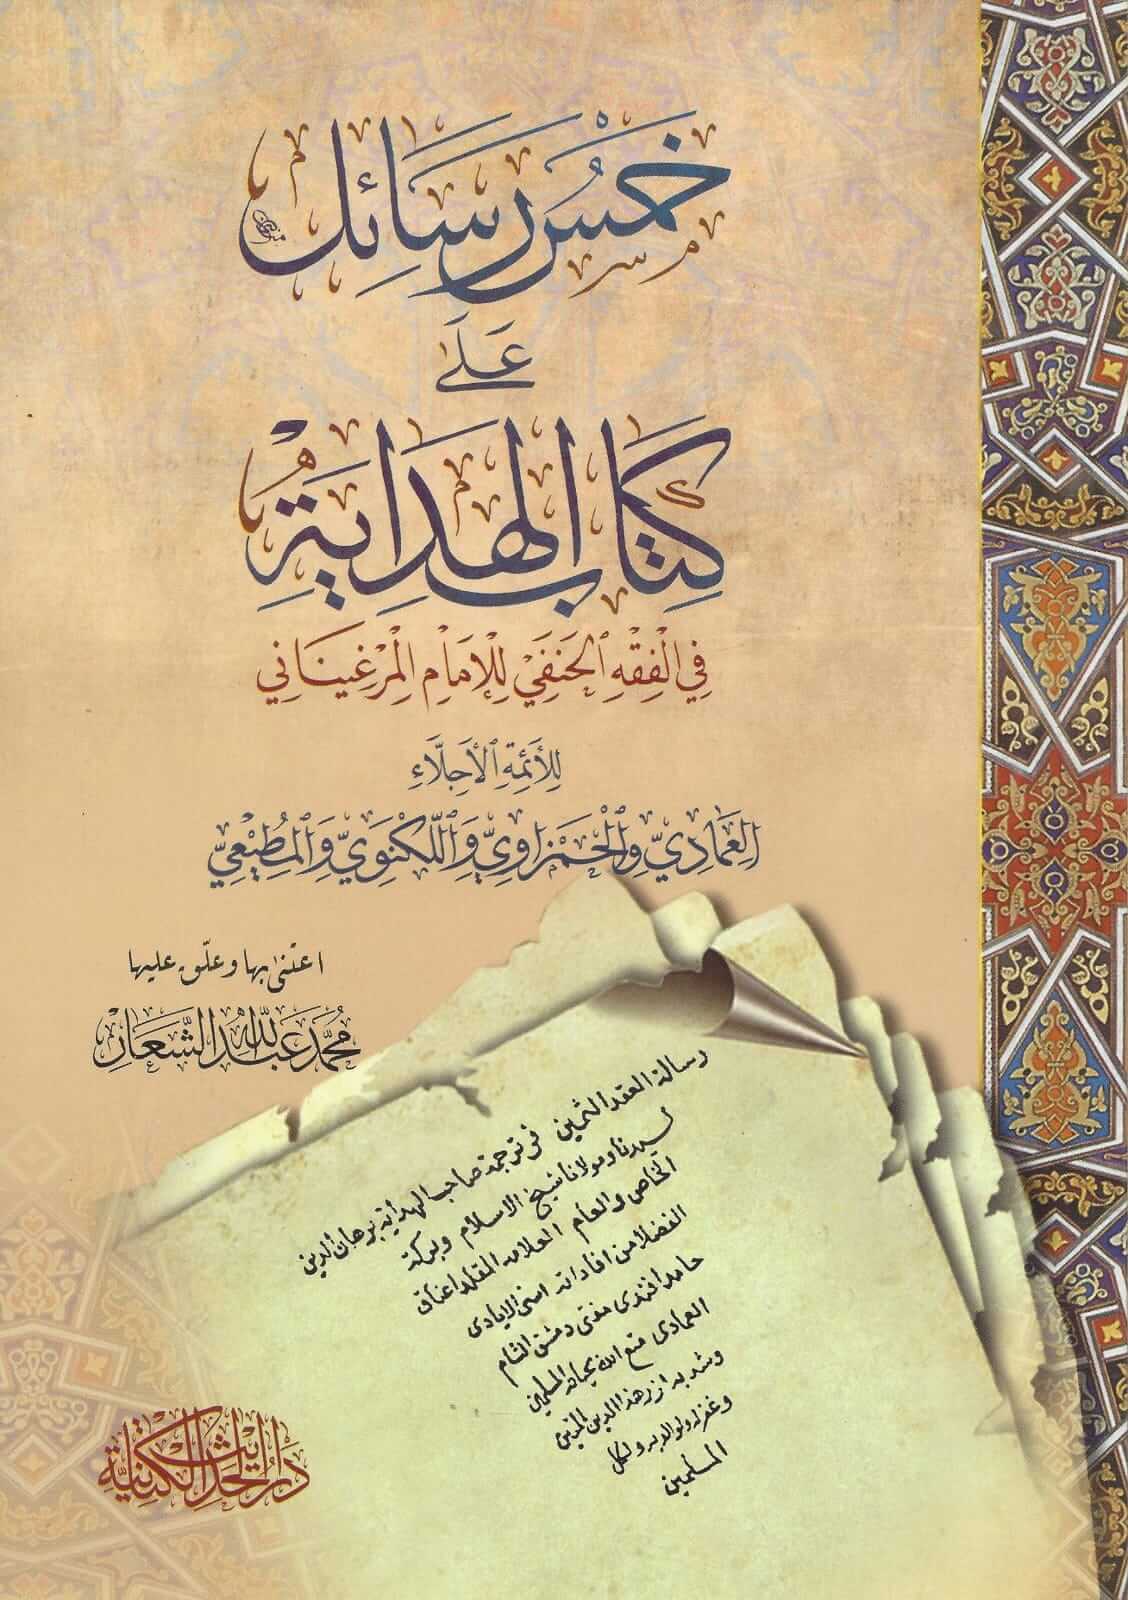 خَمْسُ رَسَائِل
عَلَى
كِتَابِ الْهِدَايَةِ
فِي الْفِقْهِ الْحَنَفِيِّ لِلْإِمَامِ الْمَرْغِينَانِي
لِلْأَئِمَّةِ الْأَجِلَّاءِ
الْعِمَادِيِّ وَالْحَمْزَاوِيِّ وَاللَّكْنَوِيِّ وَالْمُطِيعِيِّ
اعتنى بها وعلّق عليها
مُحَمَّد عَبْدُ اللهِ الشَّعَّار
رسالة العقد الثمين في ترجمة صاحب الهداية برهان الدين
لسيدنا ومولانا شيخ الاسلام وبركة
الخاص والعام العلامه المقلد اعناق
الفضلا من افاداته اسنى الايادى
حامد افندى مفتى دمشق الشام
العمادى متع الله بحياته المسلمين
وشد به ازر هذا الدين المتين
وغفر له ولوالديه ولكل
المسلمين
دار الحديث الكتانية